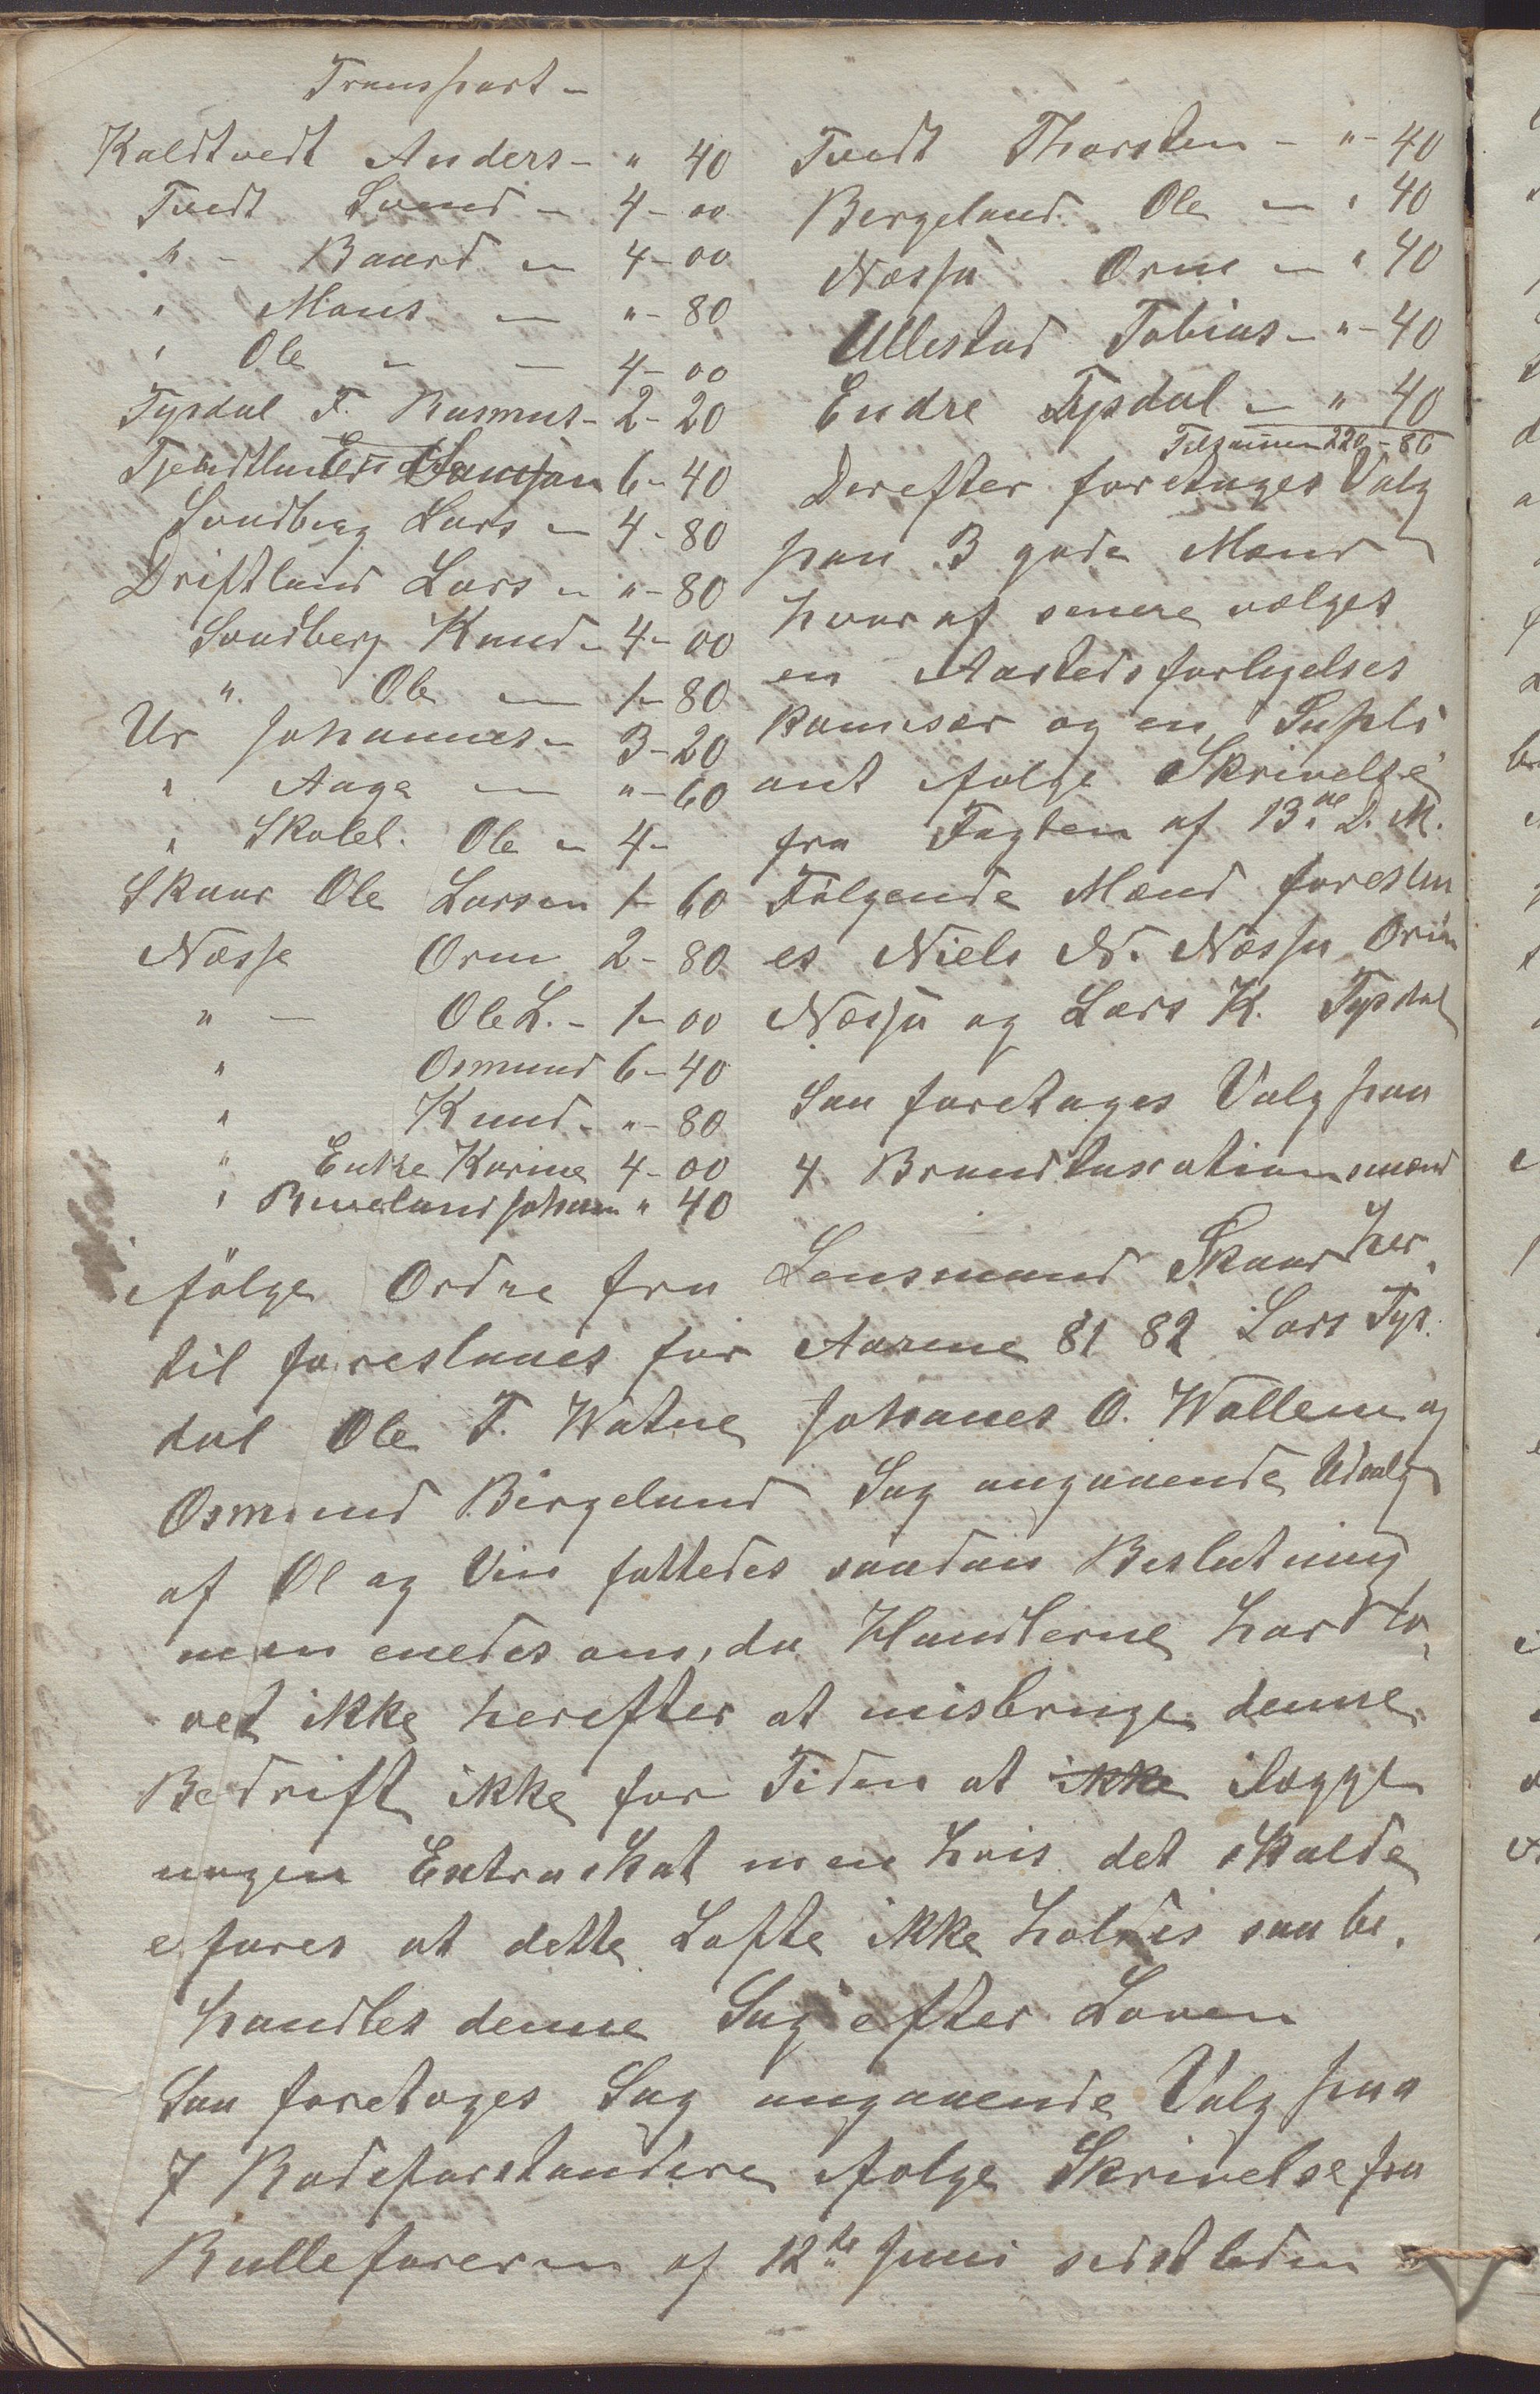 Transport -
Kaldtvedt Anders - " 40
Tvedt Svend - 4 - 00
" - Baard - 4 - 00
" Mons - " - 80
" Ole - - 4 - 00
Tysdal T. Rasmus - 2 - 20
Tjentland Samson 6 - 40
Sondberg Lars - 4 - 80
Driftland Lars - " - 80
Sondberg Knud - 4 - 00
" Ole - 1 - 80
Ur Johannes - 3 - 20
" Aage - " - 60
" Skolel. Ole - 4 -
Skaar Ole Larsen 1 - 60
Næsse Orm 2 - 80
" - Ole L. - 1 - 00
" Osmund 6 - 40
" Knud - " - 80
" Enke Karine 4 - 00
" Riveland Johan " 40
Tvedt Thorsten - " - 40
Bergeland Ole - " 40
Næssa Orm - " 40
Ullestad Tobias - " - 40
Endre Tysdal - " 40
Tilsammen 220 - 80
Derefter foretages Valg
paa 3 gode Mænd
hvoraf senere vælges
en Aastedsforligelses
komisær og en Supli
ant ifølge Skrivelse
fra Fogten af 13de D. M.
Følgende Mænd foreslaa
es Niels N. Næssa Orm
Næssa og Lars K. Tysdal
Saa foretages Valg paa
4 Brandtaxationsmænd
ifølge Ordre fra Lensmand Skaar her,
til foreslaaes for Aarene 81 82 Lars Tys.
dal Ole T. Watne Johanes O. Wallem og
Osmund Bergeland Sag angaaende Udvalg
af Øl og Vin fattedes saadan Beslutning
man enedes om, da Handlerne har lo,
vet ikke herefter at misbruge denne
Bedrift ikke for Tiden at ikke ilægge
nogen Extraskat men hvis det skulde
efares at dette Løfte ikke holdes saa be,
handles denne Sag efter Loven
Saa foretoges Sag angaaende Valg paa
7 Rodeforstandere ifølge Skrivelse fra
Rulleføreren af 12te Juni sidstleden